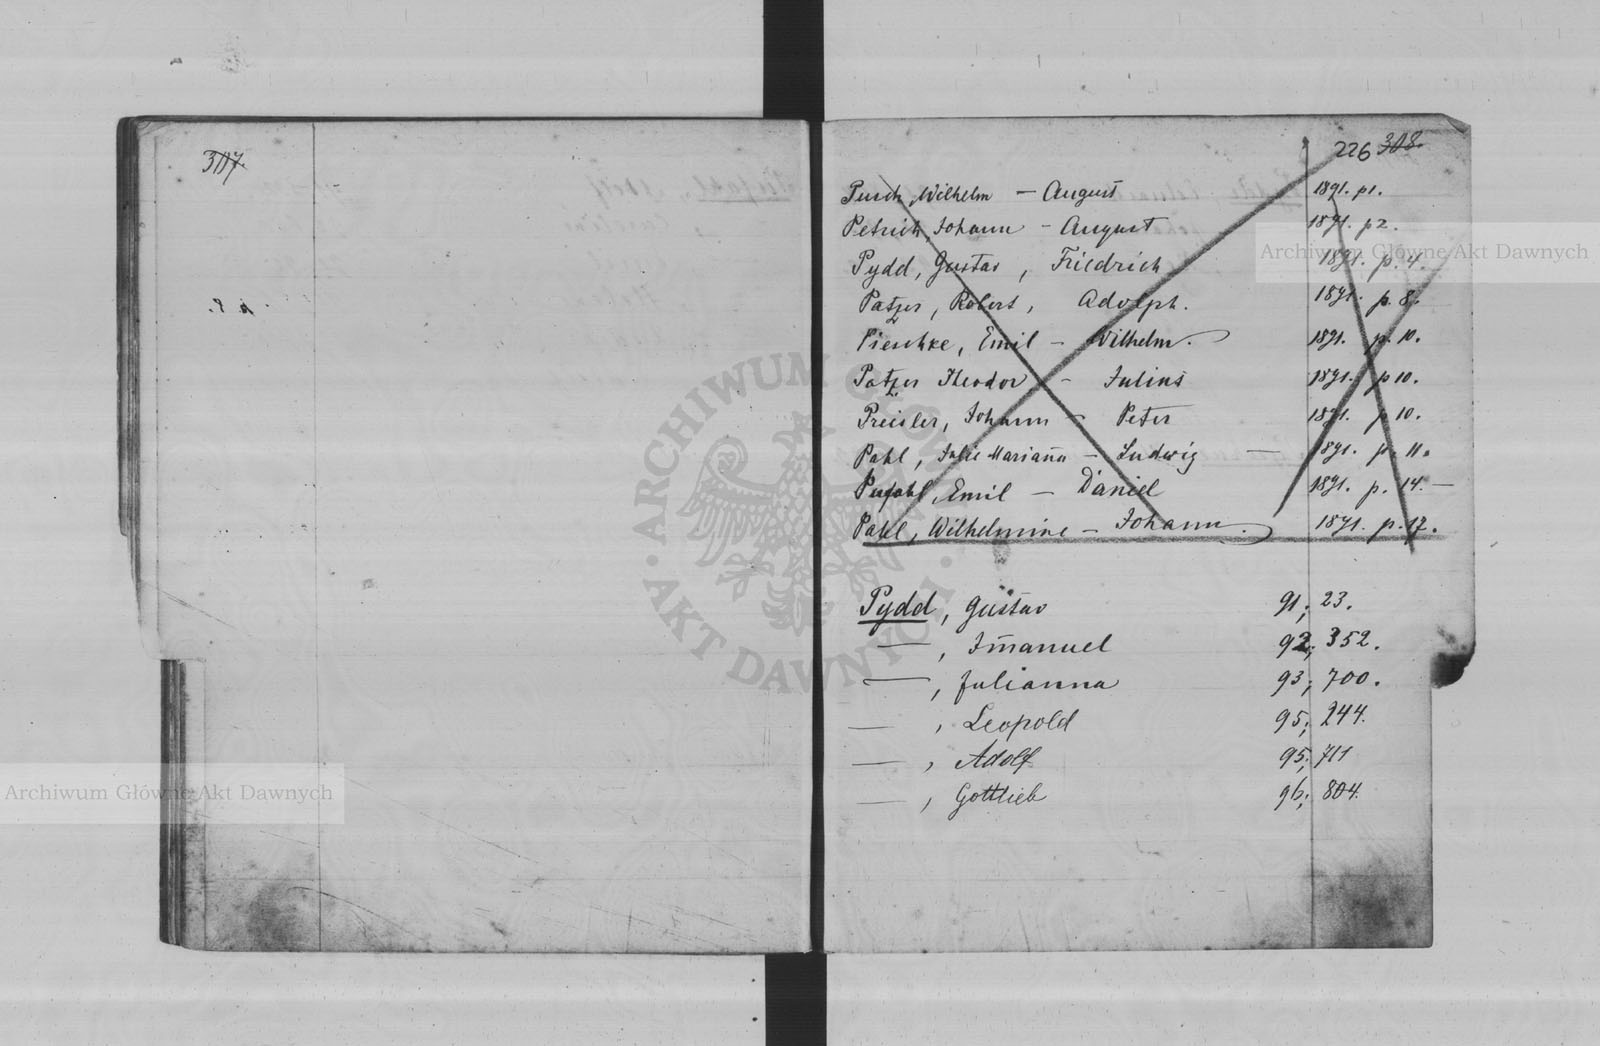 307.
226 308.
Pusch, Wilhelm — August 1891. p1.
Petrich, Johann - August 1891. p2.
Pydd, Gustav, Friedrich 1891. p. 4.
Patzer, Robert, Adolph. 1891. p. 8.
Pieschke, Emil — Wilhelm. 1891. p. 10.
Patzer Theodor - Julius 1891. p 10.
Preisler, Johann — Peter 1891. p 10.
Pahl, Julie Mariana — Ludwig — 1891. p. 11.
Pufahl, Emil — Daniel 1891. p. 14. —
Pahl, Wilhelmine — Johann. 1891. p. 17.
Pydd, Gustav 91; 23.
—, Imanuel 92; 352.
—, Julianna 93; 700.
—, Leopold 95; 244.
—, Adolf 95; 711
—, Gottlieb 96; 804.
Archiwum Główne Akt Dawnych
Archiwum Główne Akt Dawnych
ARCHIWUM GŁÓWNE
AKT DAWNYCH